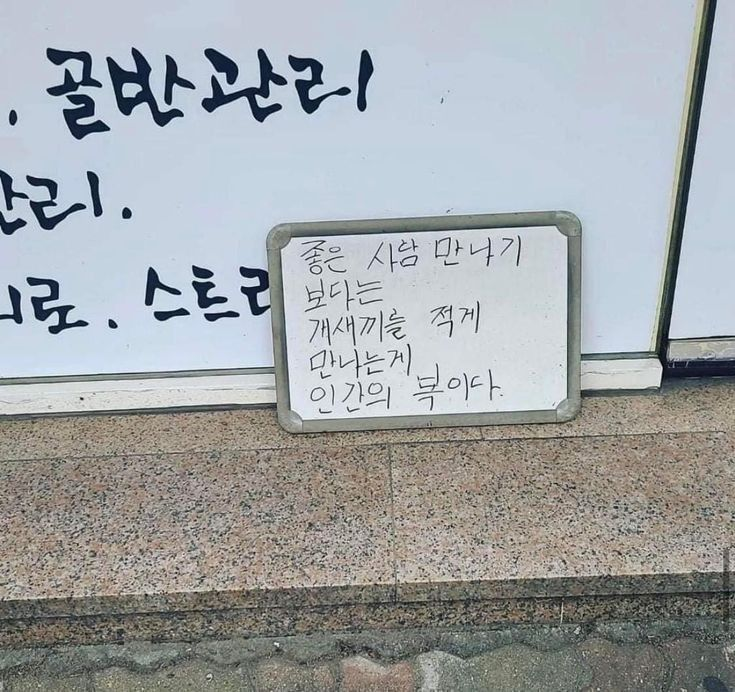 . 골반관리
관리.
피로. 스트
좋은 사람 만나기
보다는
개새끼를 적게
만나는게
인간의 복이다.